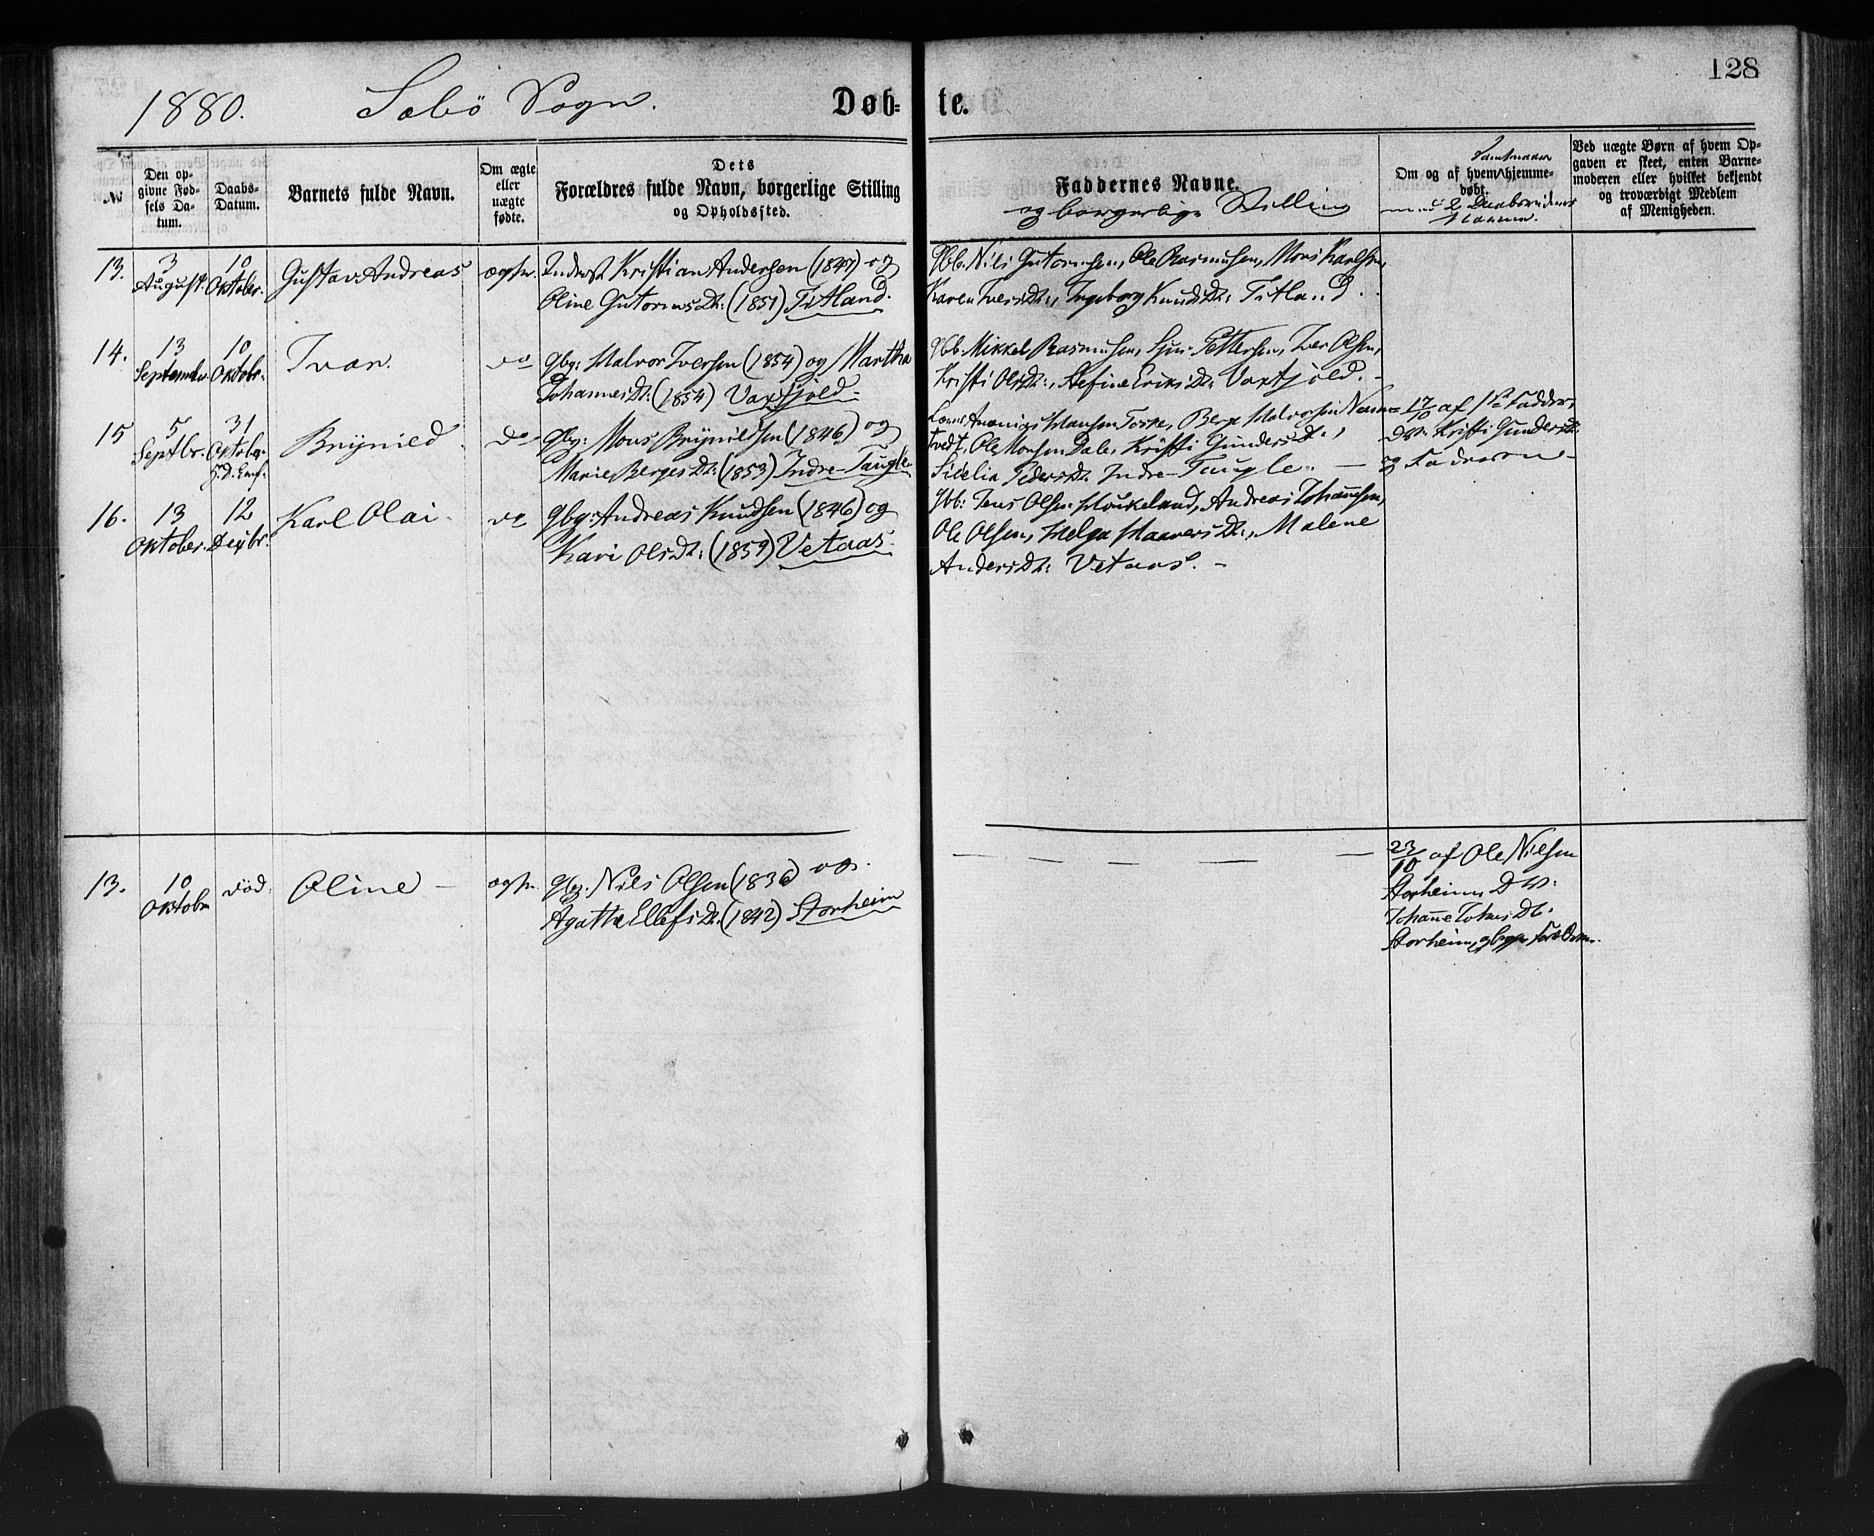 128
1880. Sæbø Sogn. Døb= te.
No
Den op-
givne Fød-
sels Da-
tum.
Daabs-
Datum.
Barnets fulde Navn.
Om ægte
eller
uægte
fødte.
Dets
Forældres fulde Navn, borgerlige Stilling
og Opholdssted.
Faddernes Navne.
og borgerlige Stilling
Om og af hvem hjemme-
døbt.
med 2 Daabsvidners
Navne.
Ved uægte Børn af hvem Op-
gaven er skeet, enten Barne-
moderen eller hvilket bekjendt
og troværdigt Medlem
af Menigheden.
13. 3 August. 10 Oktober. Gustav Andreas ægte. Inderst Kristian Andersen (1847) og
Oline Gutormsdt: (1851) Titland.
Gbb: Nils Gutormsen, Ole Rasmusen, Mons Karlsen,
Karen Iversdt:, Ingeborg Knudsdt: Titland.
14. 13 September. 10 Oktobr. Ivar. do Gbr: Halvor Iversen (1854) og Martha
Johannesdt: (1854) Vaxtjold.
Gbb: Mikkel Rasmusen, Sjur Pettersen, Iver Olsen,
Kristi Olsdt:, Stefine Eriksdt: Vaxtjold. -
15 5 Septbr. 31 Oktober. Brynild do Gbr: Mons Brynildsen (1846) og
Marie Bergesdt: (1853) Indre-Taugle
Hansen Toske, Berge Halvorsen
tvedt, Ole Monsen Dale, Kristi Gundersdt:,
Fidelia Pedersdt: Indre-Taugle. -
17/10 af 1ste Fadder,
DV: Kristi Gundersdt:
og Faderen -
16. 13 Oktober. 12 Dexbr. Karl Olai. do Gbr: Andreas Knudsen (1846) og
Kari Olsdt: (1859) Vetaas.
Gbb: Jens Olsen Houkeland, Andreas Johannesen,
Ole Olsen, Helga Haaversdt:, Malene
Andersdt: Vetaas. -
13. 10 Oktobr død. Oline - ægte. Gbr. Nils Olsen (1836) og
Agatha Ellefsdt: (1842) Storheim
23/10 af Ole Nilsen
Storheim, DV:
Johanne Johnsdt:
Storheim,